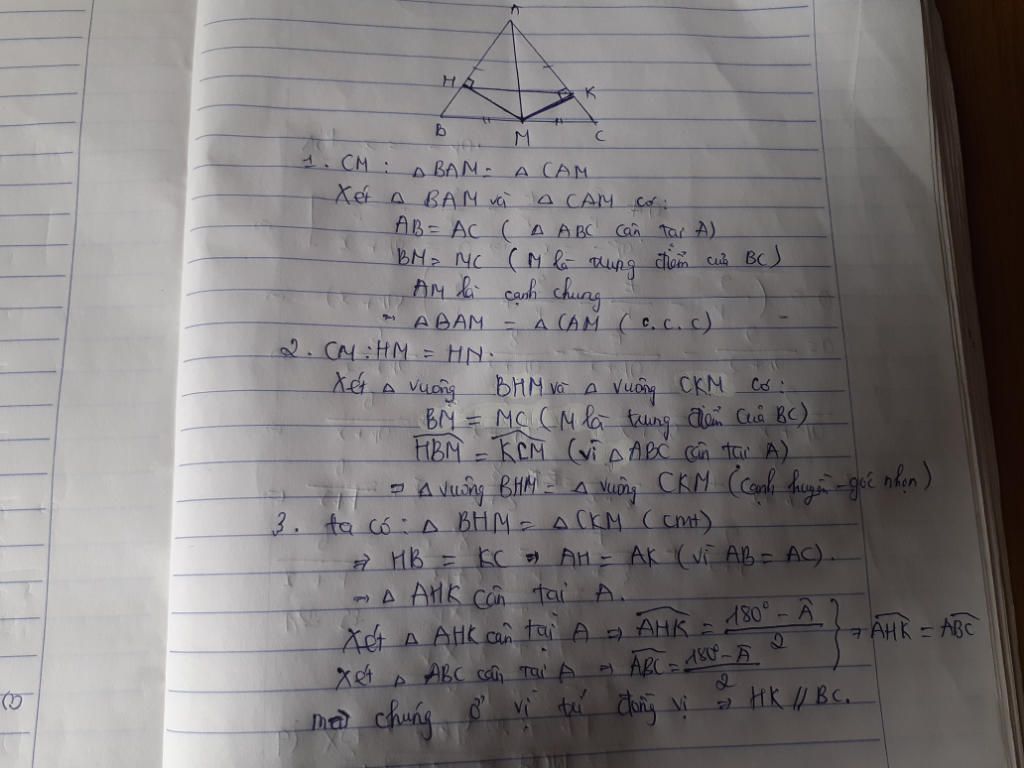 A
H
K
B
M
C
1. CM: △ BAM = △ CAM
Xét △ BAM và △ CAM có:
AB = AC ( △ ABC cân tại A)
BM = MC ( M là trung điểm của BC)
AM là cạnh chung
⇒ △BAM = △ CAM ( c.c.c)
2. CM: HM = HN.
Xét △ vuông BHM và △ vuông CKM có:
BM = MC ( M là trung điểm của BC)
\widehat{HBM} = \widehat{KCM} (vì △ABC cân tại A)
⇒ △ vuông BHM = △ vuông CKM (cạnh huyền - góc nhọn)
3. ta có: △ BHM = △CKM (cmt)
⇒ HB = KC ⇒ AH = AK (vì AB = AC).
⇒ △ AHK cân tại A.
Xét △ AHK cân tại A ⇒ \widehat{AHK} = \frac{180° - \widehat{A}}{2}
Xét △ ABC cân tại A ⇒ \widehat{ABC} = \frac{180° - \widehat{A}}{2}
} ⇒ \widehat{AHK} = \widehat{ABC}
mà chúng ở vị trí đồng vị ⇒ HK // BC.